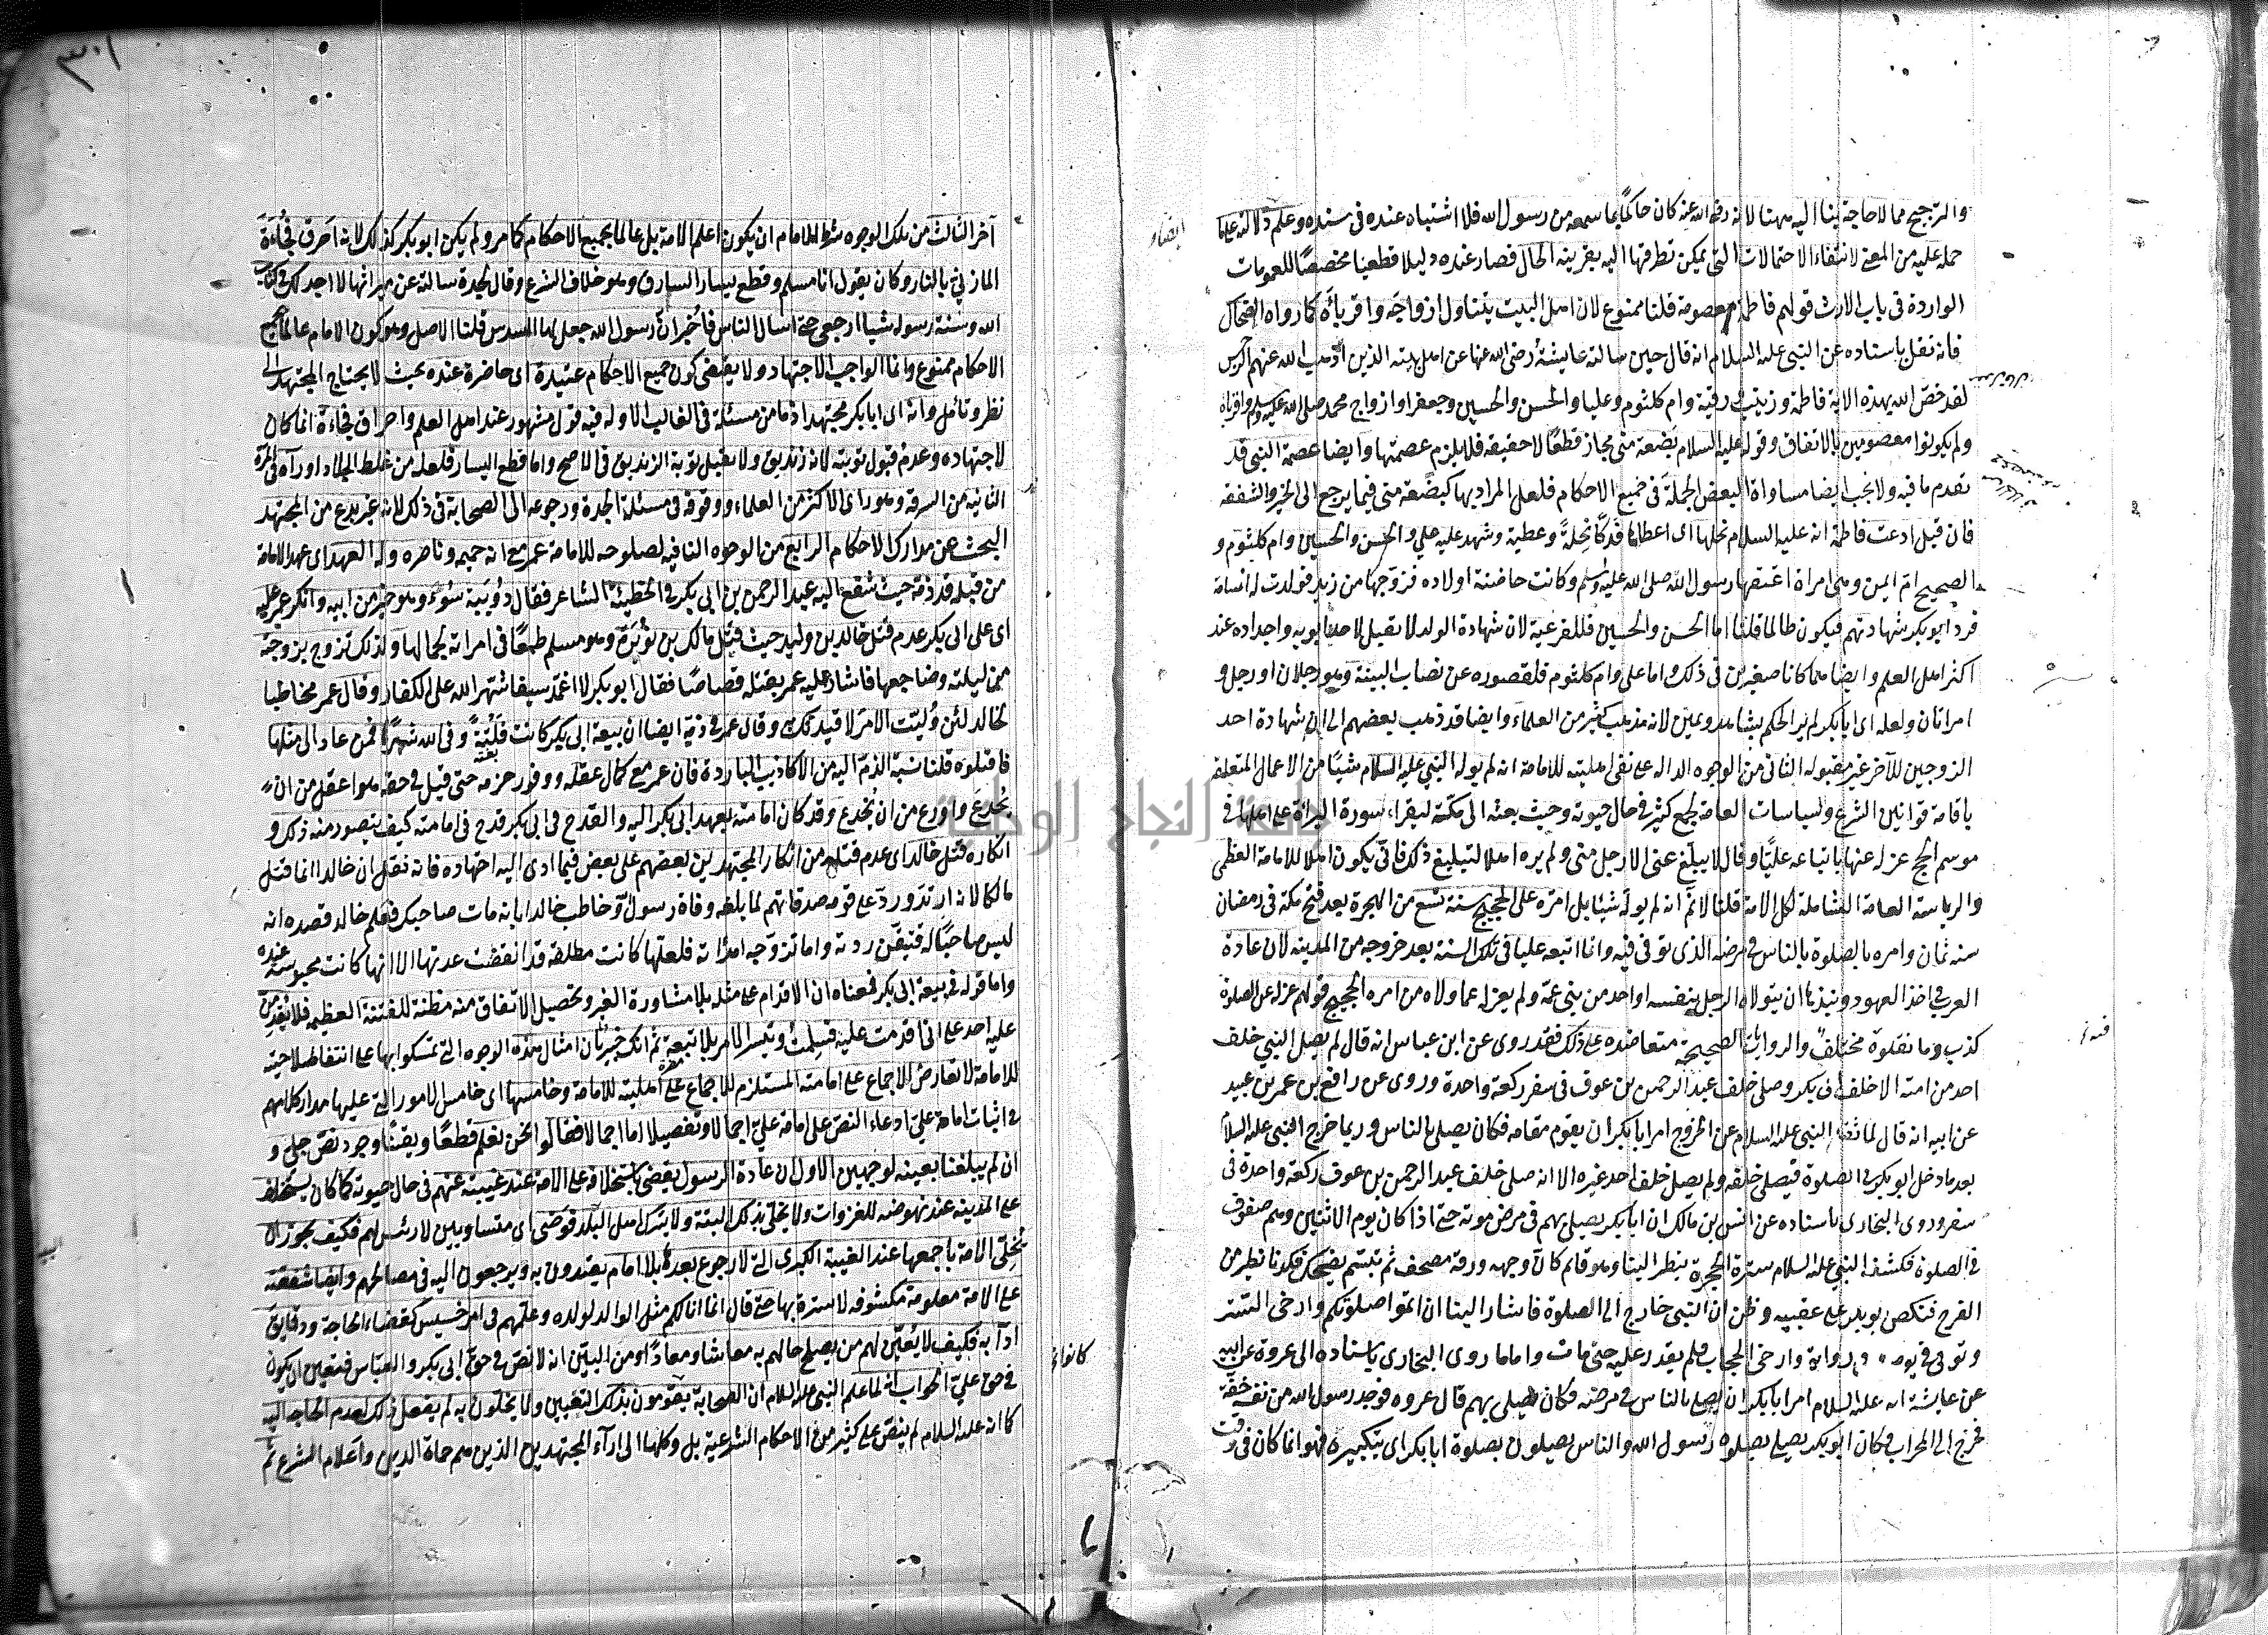 والترجيح مما لا حاجة بنا اليه ههنا لانه رضى الله عنه كان حاكما بما سمعه من رسول الله فلا اشتباه عنده فى سنده وعلم دلالته على ما
حمله عليه من المعنى لانتفاء الاحتمالات التى يمكن تطرقها اليه بقرينة الحال فصار عنده دليلا قطعيا مخصصا للعمومات
الواردة فى باب الارث قولهم فاطمة معصومة قلنا ممنوع لان اهل البيت يتناول ازواجه واقرباءه كما رواه الضحاك
فانه نقل باسناده عن النبى عليه السلام انه قال حين سالته عايشة رضى الله عنها عن اهل بيته الذين اذهب الله عنهم الرجس
لقد خص الله بهذه الاية فاطمة وزينب ورقية وام كلثوم وعليا والحسن والحسين وجعفرا وازواج محمد صلى الله عليه وسلم واقرباه
ولم يكونوا معصومين بالاتفاق وقوله عليه السلام بضعة منى مجاز قطعا لا حقيقة فلا يلزم عصمتها وايضا عصمة النبى قد
تقدم ما فيه ولا يجب ايضا مساواة البعض الجملة فى جميع الاحكام فلعل المراد بها كبضعة منى فيما يرجع الى الخير والشفقه
فان قيل ادعت فاطمة انه عليه السلام نحلها اى اعطاها فدكا نحلة وعطية وشهد عليه على والحسن والحسين وام كلثوم و
الصحيح ام ايمن وهى امراة اعتقها رسول الله صلى الله عليه وسلم وكانت حاضنة اولاده فزوجها من زيد فولدت له اسامة
فرد ابو بكر شهادتهم فيكون ظالما قلنا اما الحسن والحسين فللفرعية لان شهادة الولد لا تقبل لاحد ابويه واجداده عند
اكثر اهل العلم وايضا هما كانا صغيرين فى ذلك واما على وام كلثوم فلقصوره عن نصاب البينة وهو رجلان او رجل و
امراتان ولعله اى ابا بكر لم ير الحكم بشاهد ويمين لانه مذهب كثير من العلماء وايضا قد ذهب بعضهم الى ان شهادة احد
الزوجين للآخر غير مقبوله الثانى من الوجوه الداله على نفى اهليته للامامة انه لم يوله النبى عليه السلام شيئا من الاعمال المتعلقه
باقامة قوانين الشرع والسياسات العامة لجمع كثير فى حال حيوته وحيث بعثه الى مكة ليقراء سورة البراءة على اهلها فى
موسم الحج عزله عنها باتباعه عليا وقال لا يبلغ عنى الا رجل منى ولم يره اهلا لتبليغ ذلك فانى يكون اهلا للامامة العظمى
والرياسة العامة الشاملة لكل الامة قلنا لا نم انه لم يوله شيئا بل امره على الحجيج سنة تسع من الهجرة بعد فتح مكة فى رمضان
سنه ثمان وامره بالصلوة بالناس فى مرضه الذى توفى فيه وانما اتبعه عليا فى تلك السنة بعد خروجه من المدينه لان عادة
العرب فى اخذ العهود ونبذها ان يتولاه الرجل بنفسه او احد من بنى عمه ولم يعزله عما ولاه من امره الحجيج قولهم عزله عن الصلوة
كذب وما نقلوه مختلق والروايات الصحيحة متعاضده على ذلك فقد روى عن ابن عباس انه قال لم يصل النبى خلف
احد من امته الا خلف ابى بكر وصلى خلف عبد الرحمن بن عوف فى سفر ركعة واحدة وروى عن رافع بن عمر بن عبيد
عن ابيه انه قال لما ثقل النبى عليه السلام عن الخروج امر ابا بكر ان يقوم مقامه فكان يصلى بالناس وربما خرج النبى عليه السلام
بعد ما دخل ابو بكر فى الصلوة فيصلى خلفه ولم يصل خلف احد غيره الا انه صلى خلف عبد الرحمن بن عوف ركعة واحدة فى
سفر وروى البخارى باسناده عن انس بن مالك ان ابا بكر يصلى بهم فى مرض موته حتى اذا كان يوم الاثنين وهم صفوف
فى الصلوة فكشف النبى عليه السلام سترة الحجرة ينظر الينا وهو قائم كان وجهه ورقة مصحف ثم تبسم يضحك فكدنا نطير من
الفرح فنكص ابو بكر على عقبيه وظن ان النبى خارج الى الصلوة فاشار الينا ان اتموا صلوتكم وارخى الستر
وتوفى فى يومه وفى رواية وارخى الحجاب فلم يقدر عليه حتى مات واما ما روى البخارى باسناده الى عروة عن ابيه
عن عايشة انه عليه السلام امر ابا بكر ان يصلى بالناس فى مرضه فكان يصلى بهم قال عروه فوجد رسول الله من نفسه خفة
فخرج الى المحراب فكان ابو بكر يصلى بصلوة رسول الله والناس يصلون بصلوة ابا بكر اى بتكبيره فهو انما كان فى وقت
ايضا
٣٠١
آخر الثالث من تلك الوجوه شرط الامام ان يكون اعلم الامة بل عالما بجميع الاحكام كما مر ولم يكن ابو بكر كذلك لانه احرق فجاءة
المازنى بالنار وكان يقول انا مسلم وقطع يسار السارق وهو خلاف الشرع وقال لجدة سالته عن ميراثها لا اجد لك فى كتاب
الله وسنة رسوله شيا ارجعى حتى اسال الناس فاخبر ان رسول الله جعل لها السدس قلنا الاصل وهو كون الامام عالما بجميع
الاحكام ممنوع وانما الواجب الاجتهاد ولا يقتضى كون جميع الاحكام عتيدة اى حاضرة عنده بحيث لا يحتاج المجتهد الى
نظر وتأمل وانه اى ابا بكر مجتهد اذ ما من مسئلة فى الغالب الا وله فيه قول مشهور عند اهل العلم واحراق فجاءة انما كان
لاجتهاده وعدم قبول توبته لانه زنديق ولا تقبل توبة الزنديق فى الاصح واما قطع اليسار فلعله من غلط الجلاد او رآه فى المرة
الثانيه من السرقه وهو راى الاكثر من العلماء ووقوفه فى مسئلة الجدة ورجوعه الى الصحابة فى ذلك لانه غير بدع من المجتهد
البحث عن مدارك الاحكام الرابع من الوجوه النافيه لصلوحه للامامة عمر مع انه حميمه وناصره وله العهد اى عهد الامامة
من قبله قد ذمه حيث شفع اليه عبد الرحمن بن ابى بكر فى الحطيئة الشاعر فقال دويبة سوء وهو خير من ابيه وانكر عمر عليه
اى على ابى بكر عدم قتل خالد بن وليد حيث قتل مالك بن نويرة وهو مسلم طمعا فى امراته لجمالها ولذلك تزوج بزوجته
من ليلته وضاجعها فاشار عليه عمر بقتله قصاصا فقال ابو بكر لا اغمد سيفا شهر الله على الكفار وقال عمر مخاطبا
لخالد لئن وليت الامر لاقيدنك به وقال عمر فى ذمه ايضا ان بيعة ابى بكر كانت فلتة وقى الله شرها فمن عاد الى مثلها
فاقتلوه قلنا نسبة الذم اليه من الاكاذيب الباردة فان عمر مع كمال عقله ووفور حزمه حتى قيل فى حقه هو اعقل من ان
يخدع واورع من ان يخدع وقد كان امامته بعهد ابى بكر اليه والقدح فى ابى بكر قدح فى امامته كيف يتصور منه ذلك و
انكاره قتل خالد اى عدم قتله من انكار المجتهدين بعضهم على بعض فيما ادى اليه اجتهاده فانه نقل ان خالدا انما قتل
مالكا لانه ارتد ورد على قومه صدقاتهم لما بلغه وفاة رسول الله وخاطب خالدا بانه مات صاحبك فعلم خالد قصده انه
ليس صاحبا له فتيقن ردته واما تزوجه امراته فلعلها كانت مطلقه قد انقضت عدتها الا انها كانت محبوسة عنده
واما قوله فى بيعة ابى بكر فمعناه ان الاقدام على مثله بلا مشاورة الغير وتحصيل الاتفاق منه مظنة للفتنة العظيمه فلا يقدمن
عليه احد على انى اقدمت عليه فسلمت وتيسر الامر بلا تبعة ثم انك خبير بان امثال هذه الوجوه التى تمسكوا بها على انتفاء صلاحيته
للامامة لا تعارض الاجماع على امامته المستلزم للاجماع على اهليته للامامة وخامسها اى خامس الامور التى عليها مدار كلامهم
فى اثبات امامة على ادعاء النص على امامة على اجمالا وتفصيلا اما اجمالا فقالوا نحن نعلم قطعا ويقينا وجود نص جلى و
ان لم يبلغنا بعينه لوجهين الاول ان عادة الرسول تقضى باستخلافه على الامة عند غيبته عنهم فى حال حيوته كما كان يستخلف
على المدينه عند نهوضه للغزوات ولا يخل بذلك البتة ولا يترك اهل البلد فوضى اى متساويين لا رئيس لهم فكيف يجوز ان
يخلى الامة باجمعها عند الغيبة الكبرى التى لا رجوع بعدها بلا امام يقتدون به ويرجعون اليه فى مصالحهم وايضا شفقته
على الامة معلومة مكشوفه لا سترة بها حتى قال انما انا لكم مثل الوالد لولده وعلمهم فى امر خسيس كقضاء الحاجة ودقايق
ادابه فكيف لا يعين لهم من يصلح حالهم به معاشا ومعادا ومن البين انه لا نص فى حق ابى بكر والعباس فتعين ان يكون
فى حق على الجواب انه لما علم النبى عليه السلام ان الصحابة يقومون بذلك التعيين ولا يخلون به لم يفعل ذلك لعدم الحاجه اليه
كما انه عليه السلام لم ينص على كثير من الاحكام الشرعية بل وكلها الى اراء المجتهدين الذين هم حماة الدين واعلام الشرع ثم
كانوا
جامعة النجاح الوطنية